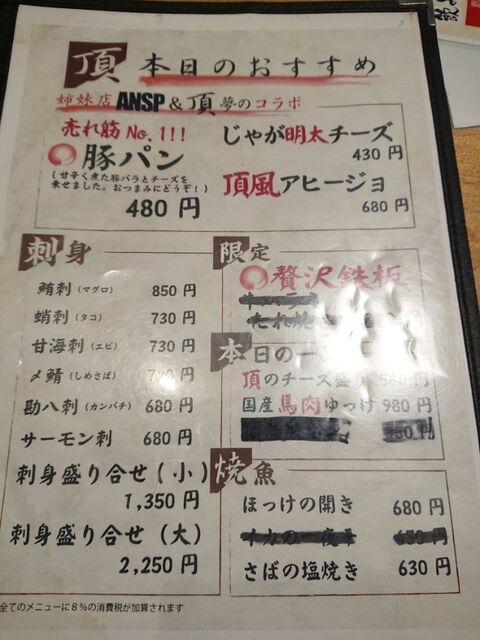 頂 本日のおすすめ
姉妹店 ANSP & 頂 夢のコラボ
売れ筋 No.1!!
豚パン
(甘辛く煮た豚バラとチーズを
乗せました。おつまみにどうぞ!)
480 円
じゃが明太チーズ
430 円
頂風アヒージョ
680 円
刺身
鮪刺(マグロ) 850 円
蛸刺(タコ) 730 円
甘海刺(エビ) 730 円
〆鯖(しめさば) 円
勘八刺(カンパチ) 680 円
サーモン刺 680 円
刺身盛り合せ(小)
1,350 円
刺身盛り合せ(大)
2,250 円
限定
贅沢鉄板
たれ焼
本日の一
頂のチーズ盛 円
国産馬肉ゆっけ 980 円
焼魚
ほっけの開き 680 円
イカの一夜干 630 円
さばの塩焼き 630 円
全てのメニューに8%の消費税が加算されます